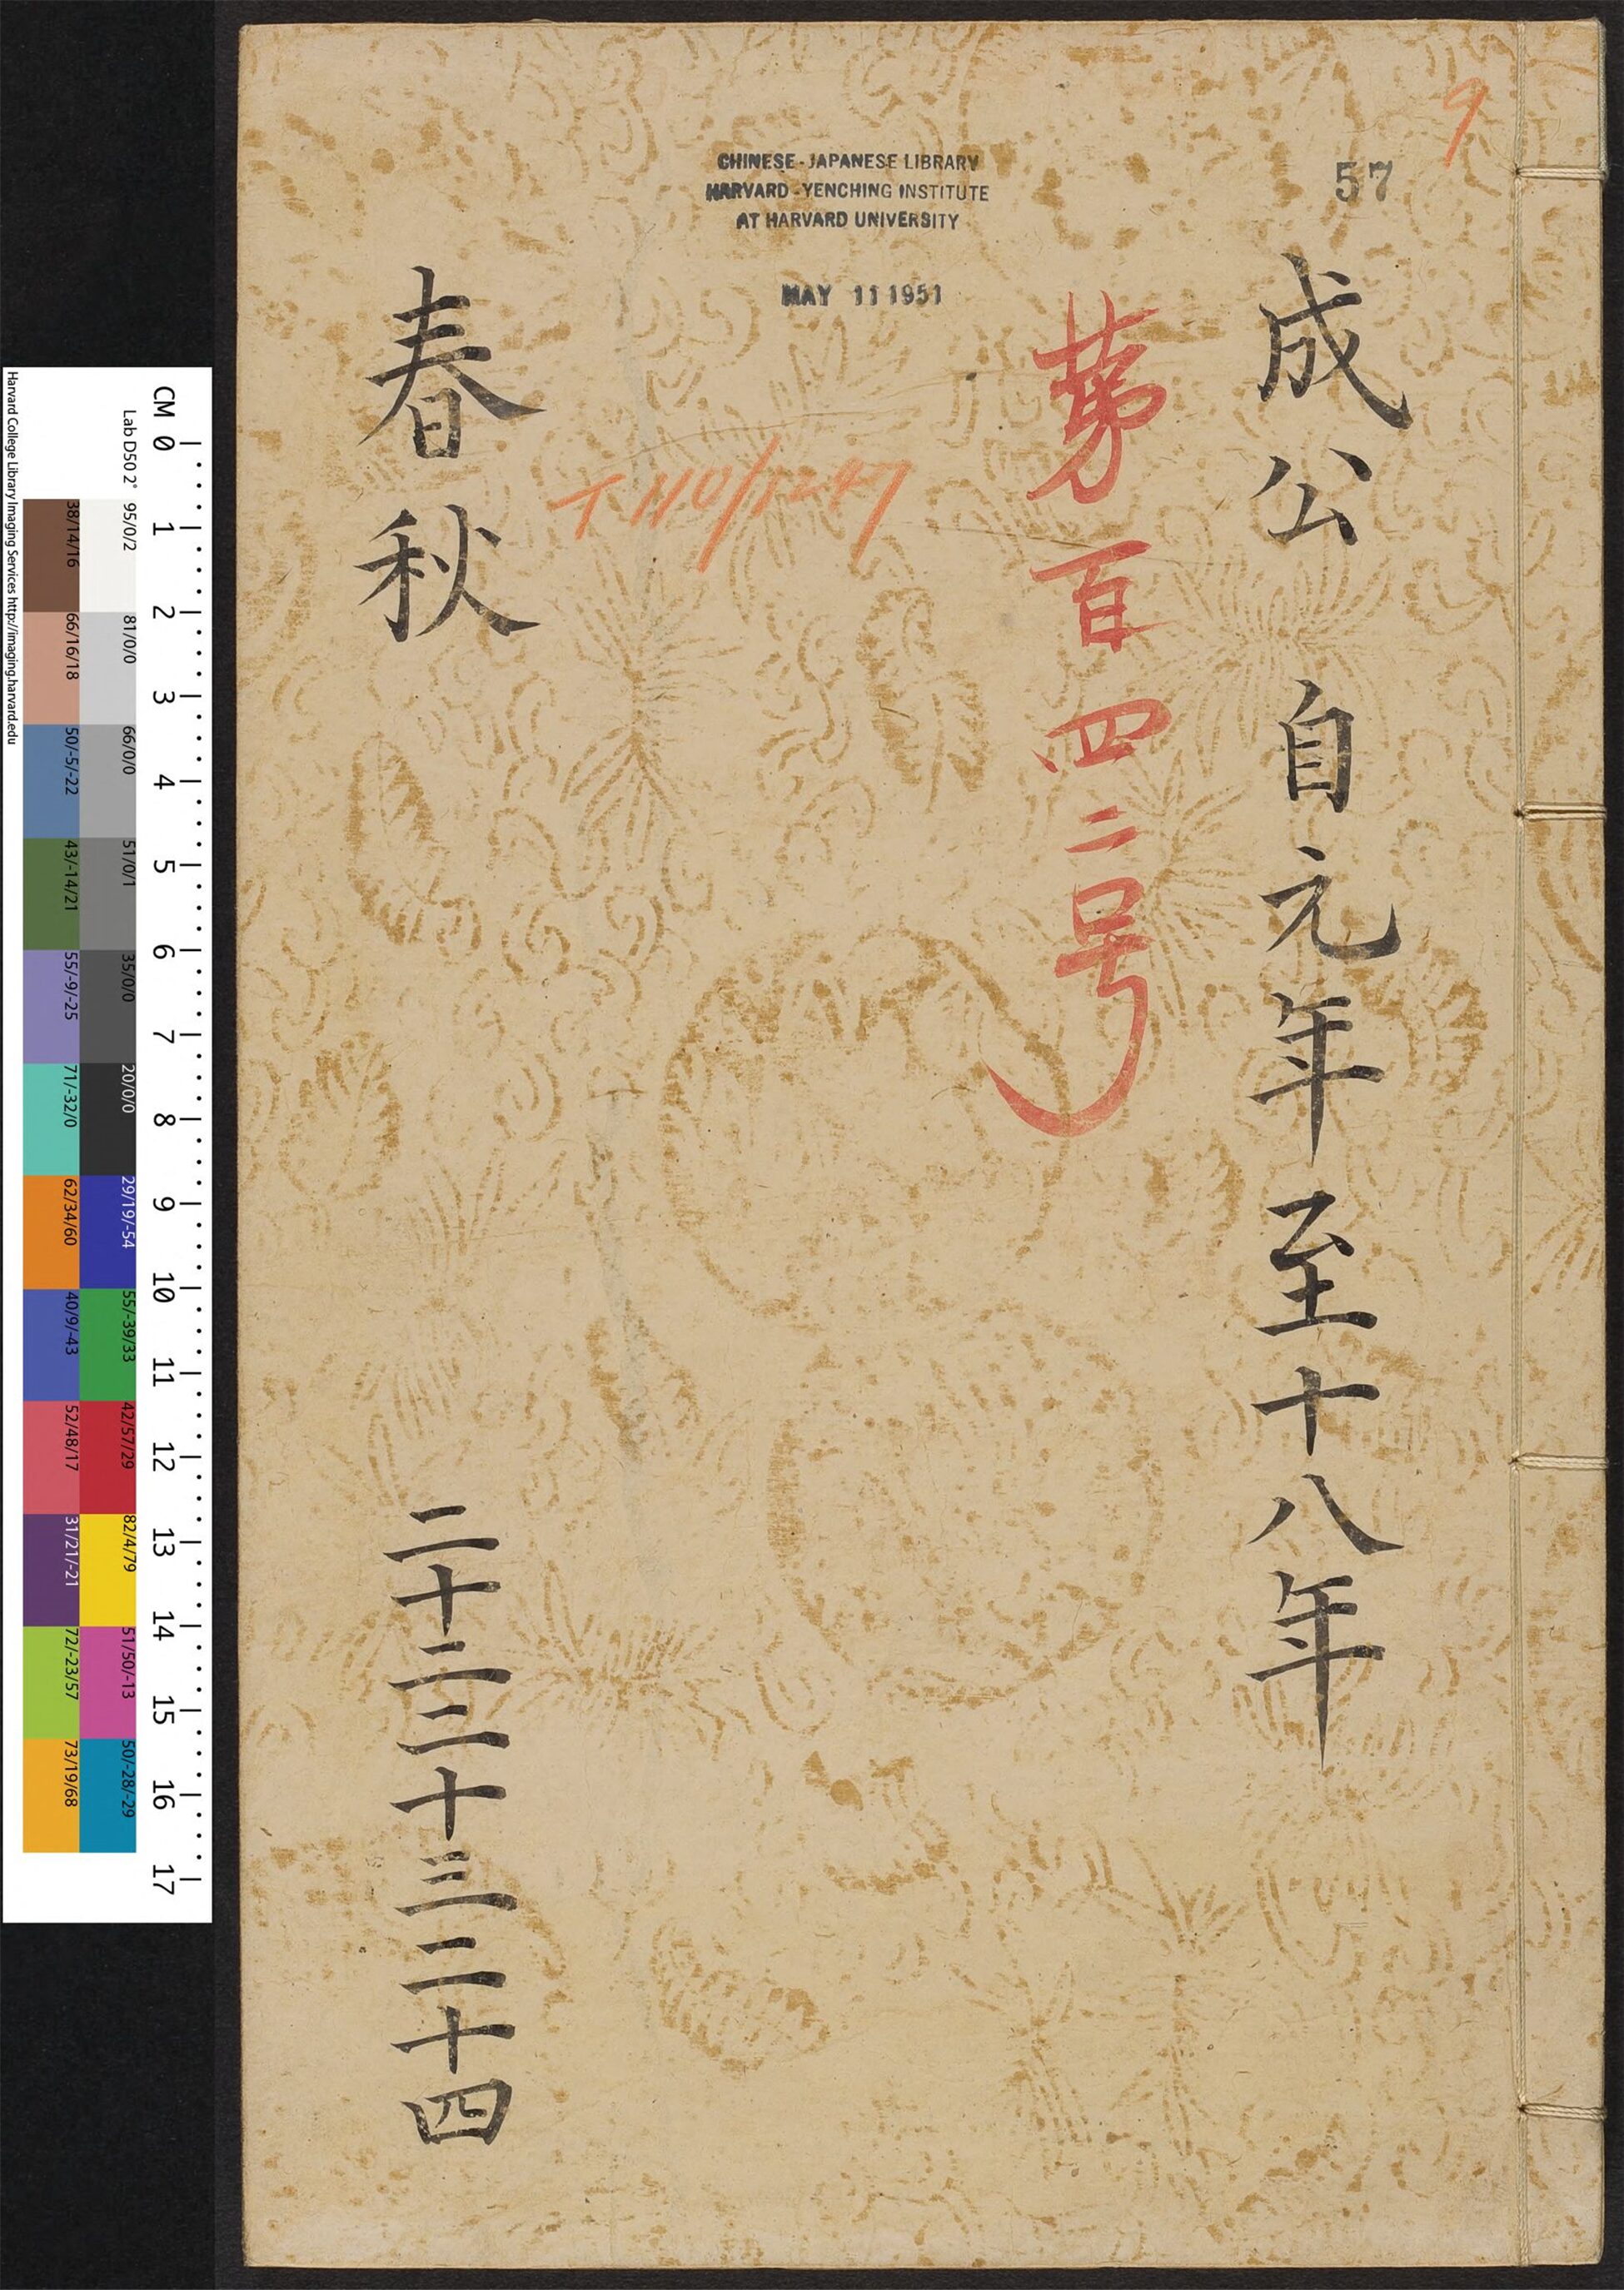 9
57
成公 自元年至十八年
苐百四二号
CHINESE-JAPANESE LIBRARY
HARVARD-YENCHING INSTITUTE
AT HARVARD UNIVERSITY
MAY 11 1951
T 110/1247
春秋 二十二二十三二十四
CM 0 1 2 3 4 5 6 7 8 9 10 11 12 13 14 15 16 17
Lab D50 2° 95/0/2 81/0/0 66/0/0 51/0/1 35/0/0 20/0/0 29/19/-54 55/-39/33 42/57/29 82/4/79 51/50/-13 50/-28/-29
38/14/16 66/16/18 50/-5/-22 43/-14/21 55/-9/-25 71/-32/0 62/34/60 40/9/-43 52/48/17 31/21/-21 72/-23/57 73/19/68
Harvard College Library Imaging Services http://imaging.harvard.edu